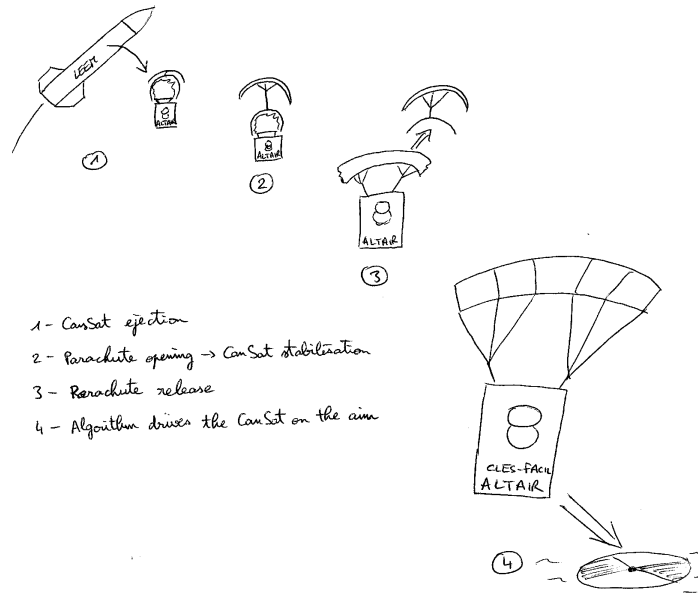 LEEM
8
ALTAIR
1
8
ALTAIR
2
8
ALTAIR
3
1- CanSat ejection
2- Parachute opening → CanSat stabilisation
3- Parachute release
4- Algorithm drives the CanSat on the aim
8
CLES-FACIL
ALTAIR
4